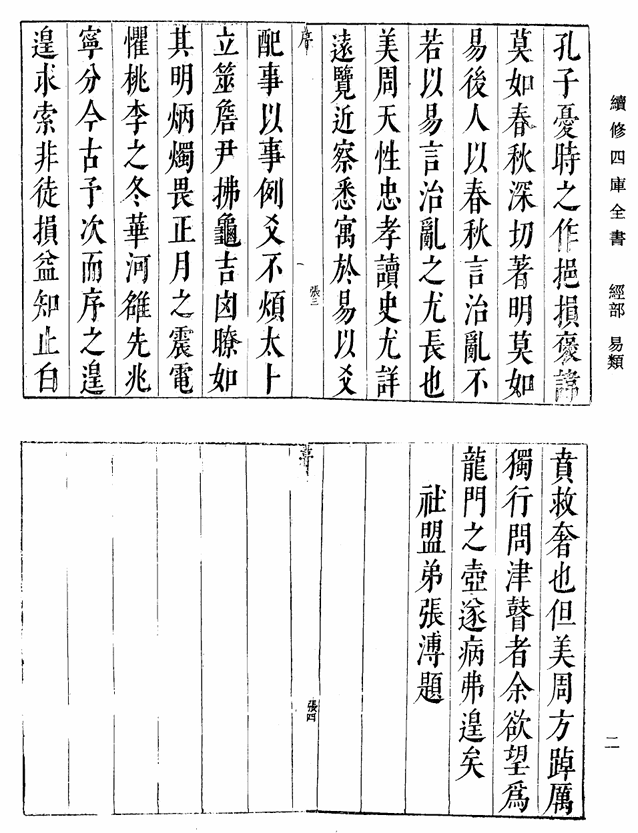 續修四庫全書 經部 易類
孔子憂時之作挹損褒諱
莫如春秋深切著明莫如
易後人以春秋言治亂不
若以易言治亂之尤長也
美周天性忠孝讀史尤詳
遠覽近察悉寓於易以爻
序
張三
配事以事例爻不煩太卜
立筮詹尹拂龜吉凶瞭如
其明炳燭畏正月之震電
懼桃李之冬華河雒先兆
寧分今古予次而序之遑
遑求索非徒損益知止白
賁救奢也但美周方踔厲
獨行問津瞽者余欲望爲
龍門之壺遂病弗遑矣
社盟弟張溥題
序
張四
二